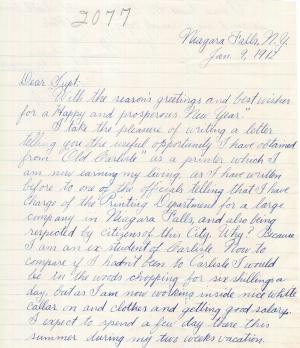 2077
Niagara Falls, N.Y.
Jan. 9, 1912
Dear Supt:
With the season's greetings and best wishes
for a "Happy and prosperous New Year."
I take the pleasure of writing a letter
telling you the useful opportunity I have obtained
from "Old Carlisle" as a printer which I
am now earning my living, as I have written
before to one of the officials telling that I have
Charge of the Printing Department for a large
company in Niagara Falls, and also being
respected by citizens of this City. Why? Because
I am an ex student of Carlisle. Now to
compare if I hadn't been to Carlisle I would
be in the woods chopping for six shillings a
day, but as I am now working inside nice white
collar on and clothes and getting good salary.
I expect to spend a few day there this
summer during my two weeks vacation.